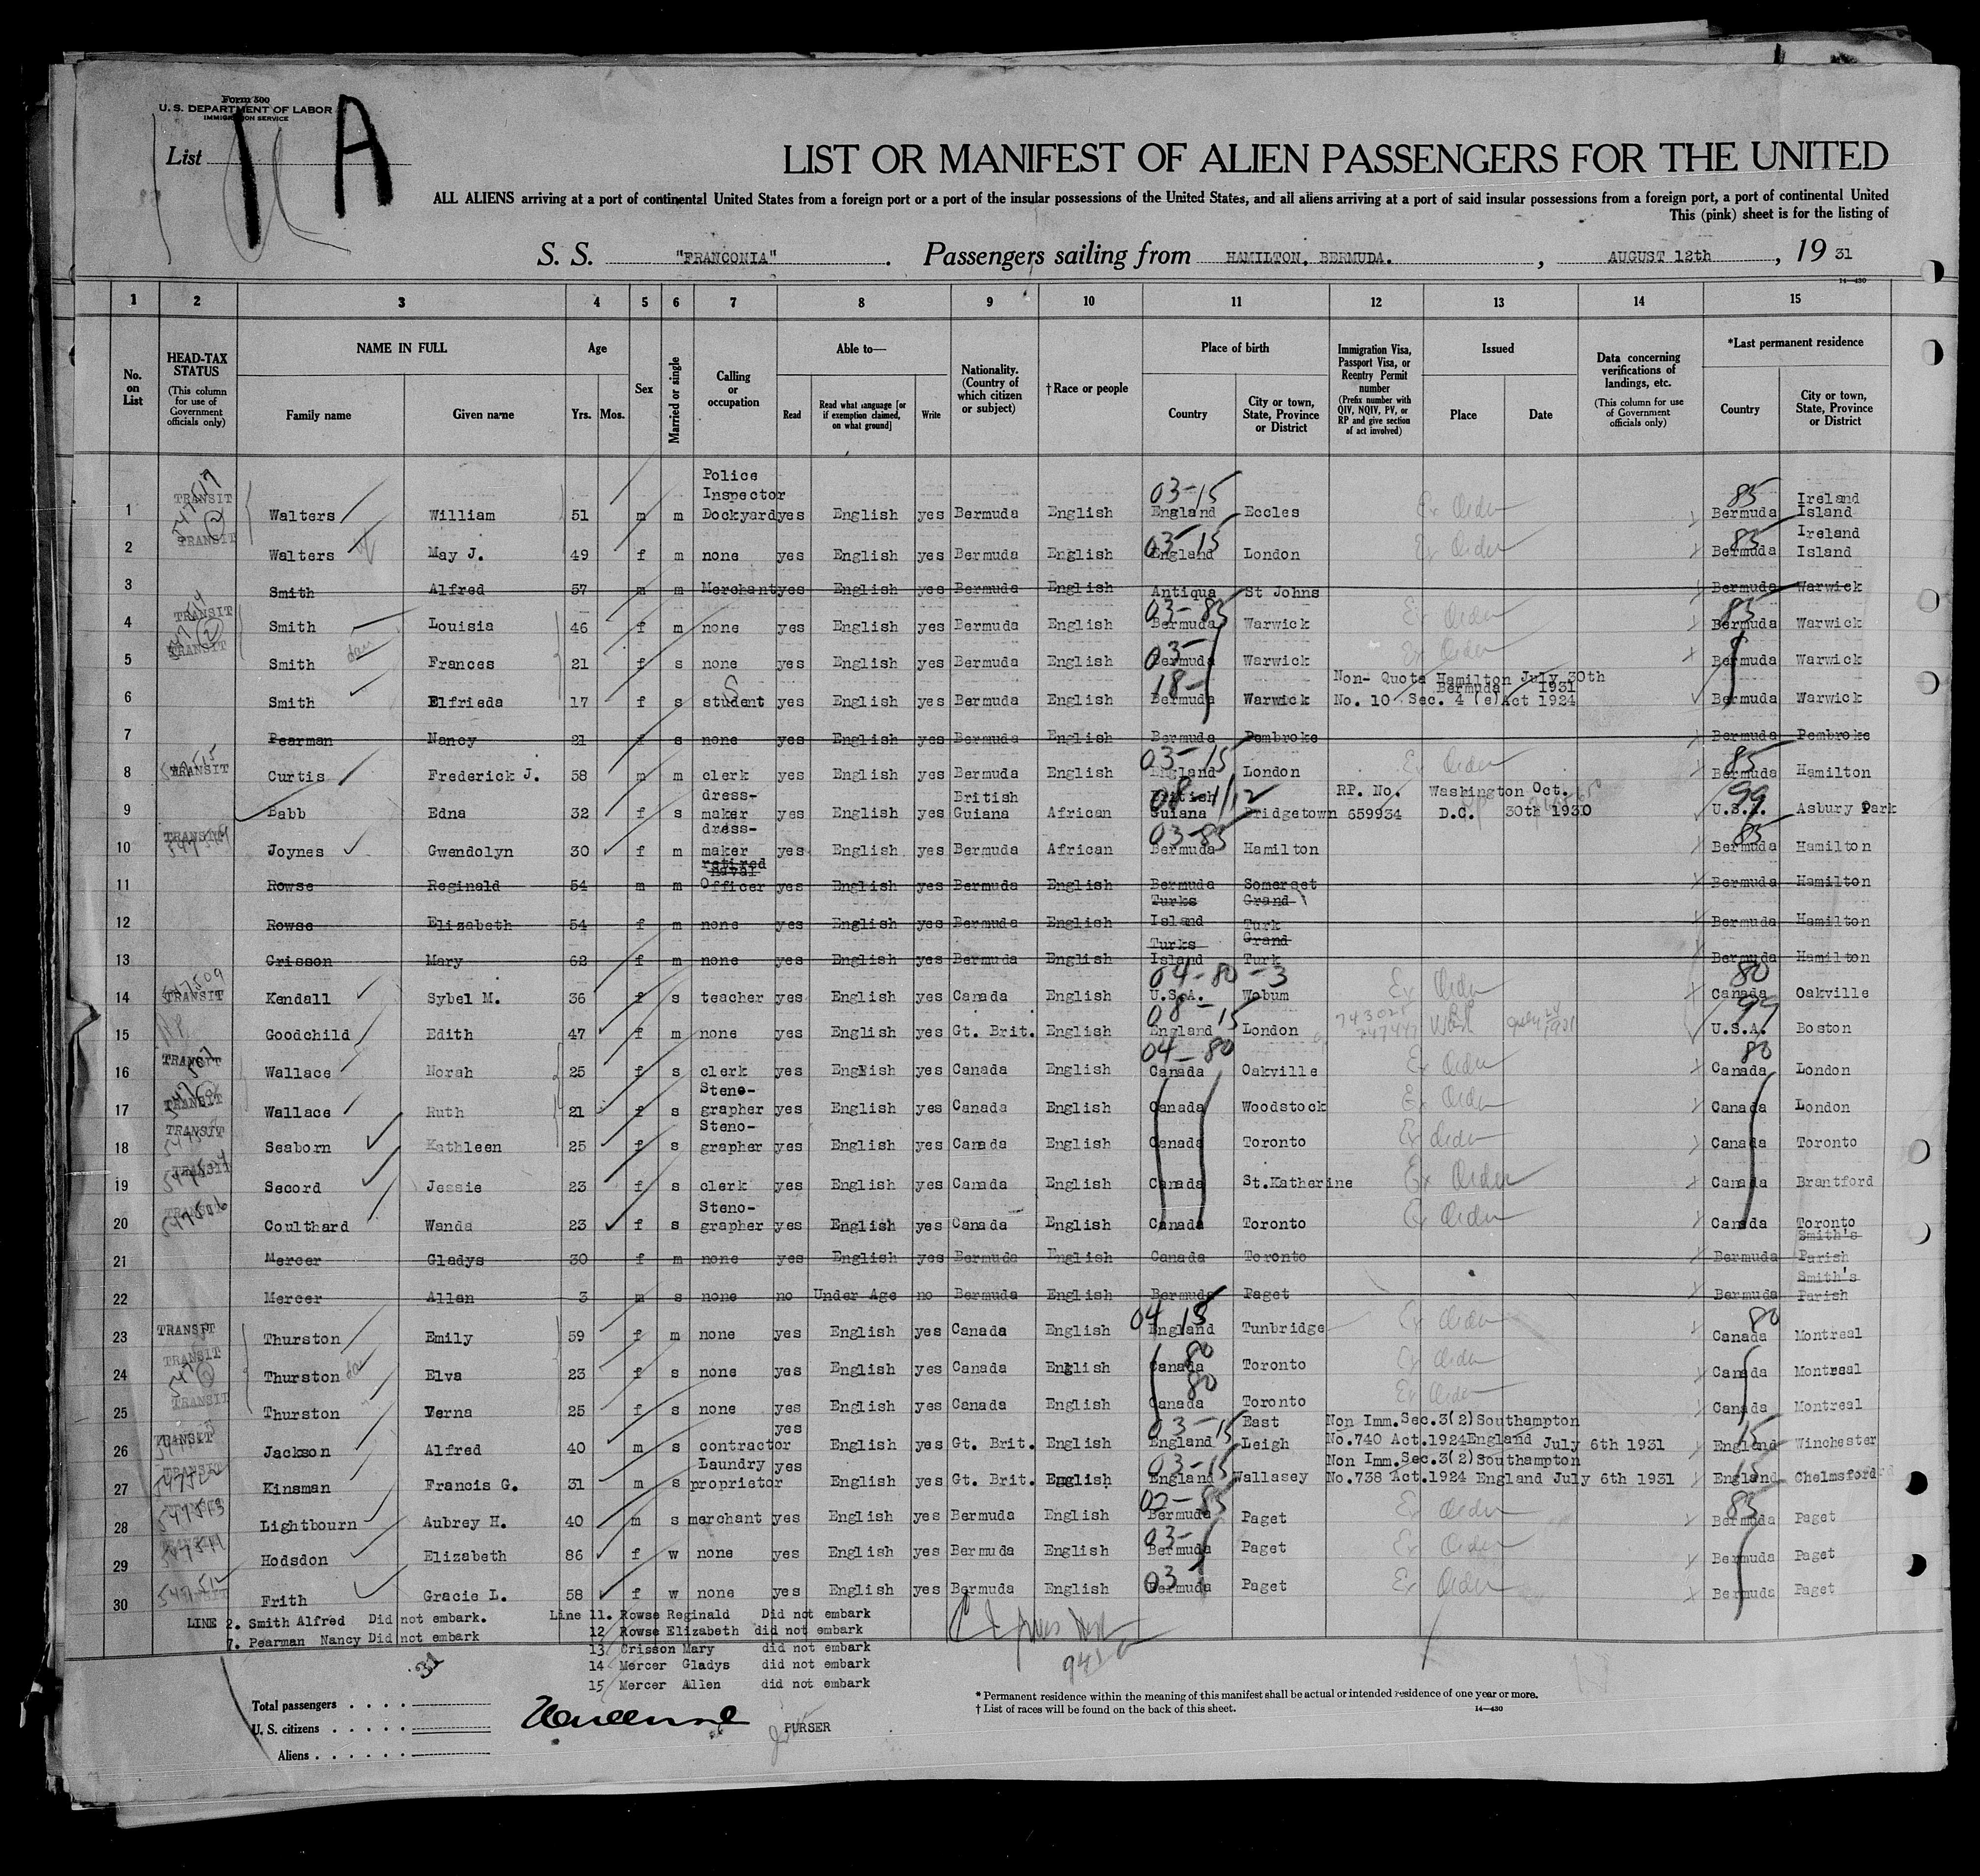 Form 500
U. S. DEPARTMENT OF LABOR
IMMIGRATION SERVICE
List 1 A
LIST OR MANIFEST OF ALIEN PASSENGERS FOR THE UNITED
ALL ALIENS arriving at a port of continental United States from a foreign port or a port of the insular possessions of the United States, and all aliens arriving at a port of said insular possessions from a foreign port, a port of continental United
This (pink) sheet is for the listing of
S. S. "FRANCONIA" . Passengers sailing from HAMILTON, BERMUDA. , AUGUST 12th , 19 31
14—430
1 2 3 4 5 6 7 8 9 10 11 12 13 14 15
No. on List
HEAD-TAX STATUS (This column for use of Government officials only)
NAME IN FULL Family name Given name
Age Yrs. Mos.
Sex
Married or single
Calling or occupation
Able to— Read Read what language [or if exemption claimed, on what ground] Write
Nationality. (Country of which citizen or subject)
†Race or people
Place of birth Country City or town, State, Province or District
Immigration Visa, Passport Visa, or Reentry Permit number (Prefix number with QIV, NQIV, PV, or RP and give section of act involved)
Issued Place Date
Data concerning verifications of landings, etc. (This column for use of Government officials only)
*Last permanent residence Country City or town, State, Province or District
1 TRANSIT Walters William 51 m m Police Inspector Dockyard yes English yes Bermuda English 03-15 England Eccles Ex Order 85 Bermuda Ireland Island
2 TRANSIT Walters May J. 49 f m none yes English yes Bermuda English 03-15 England London Ex Order 85 Bermuda Ireland Island
3 Smith Alfred 57 m m Merchant yes English yes Bermuda English Antiqua St Johns Bermuda Warwick
4 TRANSIT Smith Louisia 46 f m none yes English yes Bermuda English 03-85 Bermuda Warwick Ex Order 85 Bermuda Warwick
5 TRANSIT Smith dau Frances 21 f s none yes English yes Bermuda English 03- Bermuda Warwick Ex Order Bermuda Warwick
6 Smith Elfrieda 17 f s student yes English yes Bermuda English 18- Bermuda Warwick Non- Quota Hamilton Bermuda July 30th 1931 No. 10 Sec. 4 (e) Act 1924 Bermuda Warwick
7 Pearman Nancy 21 f s none yes English yes Bermuda English Bermuda Pembroke Bermuda Pembroke
8 TRANSIT Curtis Frederick J. 58 m m clerk yes English yes Bermuda English 03-15 England London Ex Order 85 Bermuda Hamilton
9 Babb Edna 32 f s dress-maker yes English yes British Guiana African British Guiana Bridgetown RP. No. 659934 Washington D.C. Oct. 30th 1930 99 U.S.A. Asbury Park
10 TRANSIT Joynes Gwendolyn 30 f m dress-maker yes English yes Bermuda African 03-85 Bermuda Hamilton 85 Bermuda Hamilton
11 Rowse Reginald 54 m m retired Naval Officer yes English yes Bermuda English Bermuda Somerset Bermuda Hamilton
12 Rowse Elizabeth 54 f m none yes English yes Bermuda English Turks Island Grand Turk Bermuda Hamilton
13 Crisson Mary 62 f m none yes English yes Bermuda English Turks Island Grand Turk Bermuda Hamilton
14 TRANSIT 547509 Kendall Sybel M. 36 f s teacher yes English yes Canada English 04-80-3 U.S.A. Wobum Ex Order 80 Canada Oakville
15 Goodchild Edith 47 f m none yes English yes Gt. Brit. English 08-15 England London 99 U.S.A. Boston
16 TRANSIT Wallace Norah 25 f s clerk yes English yes Canada English 04-80 Canada Oakville Ex Order 80 Canada London
17 TRANSIT Wallace Ruth 21 f s Steno-grapher yes English yes Canada English Canada Woodstock Ex Order Canada London
18 TRANSIT Seaborn Kathleen 25 f s Steno-grapher yes English yes Canada English Canada Toronto Ex Order Canada Toronto
19 TRANSIT Secord Jessie 23 f s clerk yes English yes Canada English Canada St.Katherine Ex Order Canada Brantford
20 TRANSIT 547506 Coulthard Wanda 23 f s Steno-grapher yes English yes Canada English Canada Toronto Ex Order Canada Toronto
21 Mercer Gladys 30 f m none yes English yes Bermuda English Canada Toronto Bermuda Smith's Parish
22 Mercer Allen 3 m s none no Under Age no Bermuda English Bermuda Paget Bermuda Smith's Parish
23 TRANSIT Thurston Emily 59 f m none yes English yes Canada English 04 15 England Tunbridge Ex Order 80 Canada Montreal
24 TRANSIT Thurston da Elva 23 f s none yes English yes Canada English 80 Canada Toronto Ex Order Canada Montreal
25 TRANSIT Thurston Verna 25 f s none yes English yes Canada English 80 Canada Toronto Ex Order Canada Montreal
26 TRANSIT Jackson Alfred 40 m s contractor yes English yes Gt. Brit. English 03-15 England East Leigh Non Imm.Sec.3(2) Southampton No.740 Act.1924 England July 6th 1931 15 England Winchester
27 TRANSIT Kinsman Francis G. 31 m s Laundry proprietor yes English yes Gt. Brit. English 03-15 England Wallasey Non Imm.Sec.3(2) Southampton No.738 Act.1924 England July 6th 1931 15 England Chelmsford
28 547513 Lightbourn Aubrey H. 40 m s merchant yes English yes Bermuda English 02-85 Bermuda Paget Ex Order 85 Bermuda Paget
29 Hodsdon Elizabeth 86 f w none yes English yes Bermuda English 03- Bermuda Paget Ex Order Bermuda Paget
30 547512 Frith Gracie L. 58 f w none yes English yes Bermuda English 03 Bermuda Paget Ex Order Bermuda Paget
LINE 2. Smith Alfred Did not embark. Line 11. Rowse Reginald Did not embark
7. Pearman Nancy Did not embark 12 Rowse Elizabeth did not embark
13 Crisson Mary did not embark
14 Mercer Gladys did not embark
15 Mercer Allen did not embark
31
Total passengers . . . .
U. S. citizens . . . . .
Aliens . . . . . .
PURSER
* Permanent residence within the meaning of this manifest shall be actual or intended residence of one year or more.
† List of races will be found on the back of this sheet.
14—430